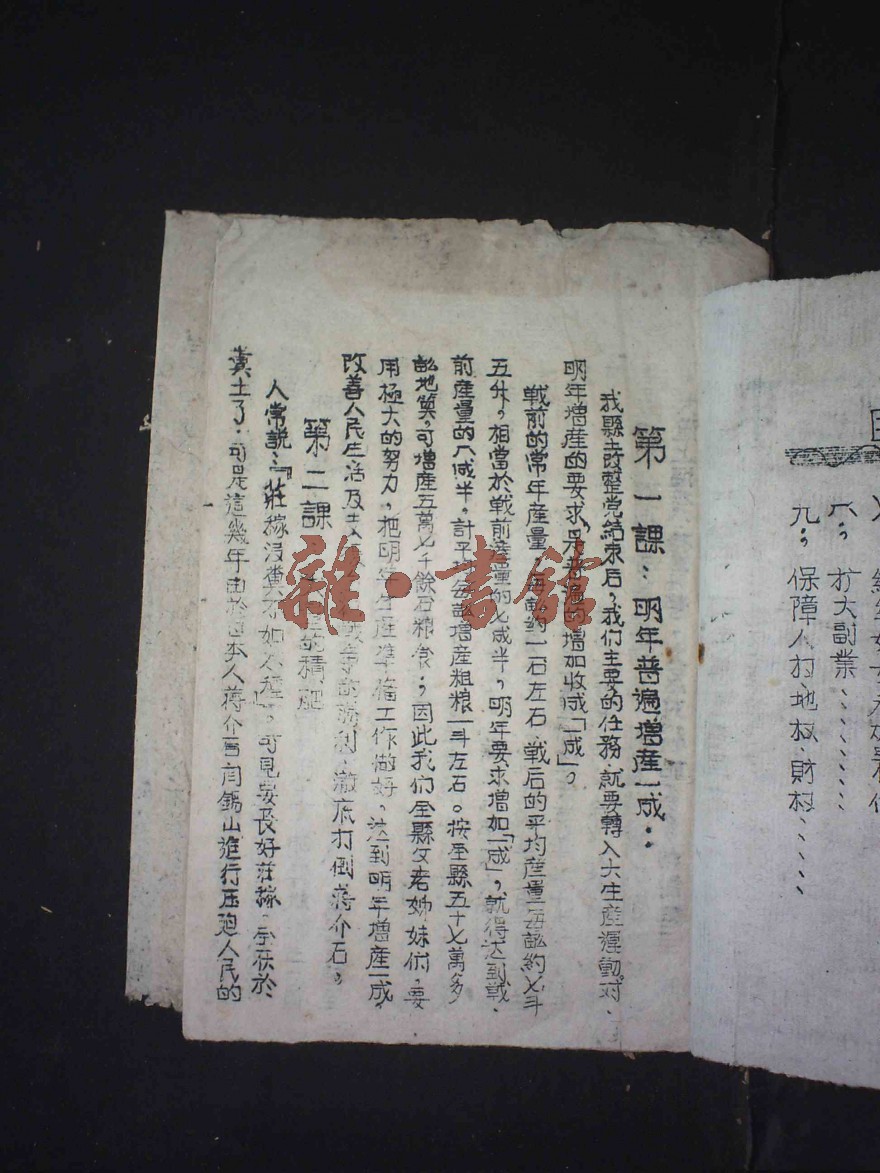 八：扩大副業……
九：保障人权、地权、財权……
第一課：明年普遍增産一成：
我縣
整党結束后，我们主要的任務，就要轉入大生産運動。对
明年增産的要求，是普遍的增加收成「一成」。
戦前的常年産量，每畝約一石左右，戦后的平均産量每畝約七斗
五升，相當於戦前産量的七成半，明年要求增如「一成」，就得达到戦
前産量的八成半，計平均每畝增産粗粮一斗左右。按全縣五十七萬多
畝地算，可增産五萬七千餘石粮食；因此我们全縣父老姉妹们，要
用極大的努力，把明年生産準俻工作做好，达到明年增産一成，
改善人民生活及支 戦爭的勝利，澈底打倒蒋介石，
第二課
的積肥
人常説：『莊稼没糞不如不種』，可見要長好莊稼，全扶於
糞土了：可是這幾年由於日本人蒋介石閻錫山進行压廹人民的
雜·書館